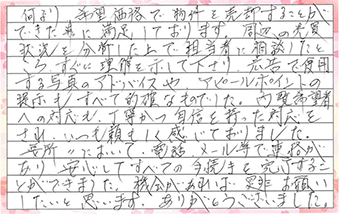 何より、希望価格で物件を売却することが
できた事に満足しております。周辺の売買
状況を分析した上で担当者に相談したと
ころ、すぐに理解を示して下さり、広告で使用
する写真のアドバイスや、アピールポイントの
提示もすべて的確なものでした。内覧希望者
への対応も、丁寧かつ自信を持った対応を
され、いつも頼もしく感じておりました。
長所においても、電話、メール等で連絡が
あり、安心してすべての手続きを完了するこ
とができました。機会があれば、是非お願い
したいと思います。ありがとうございました。